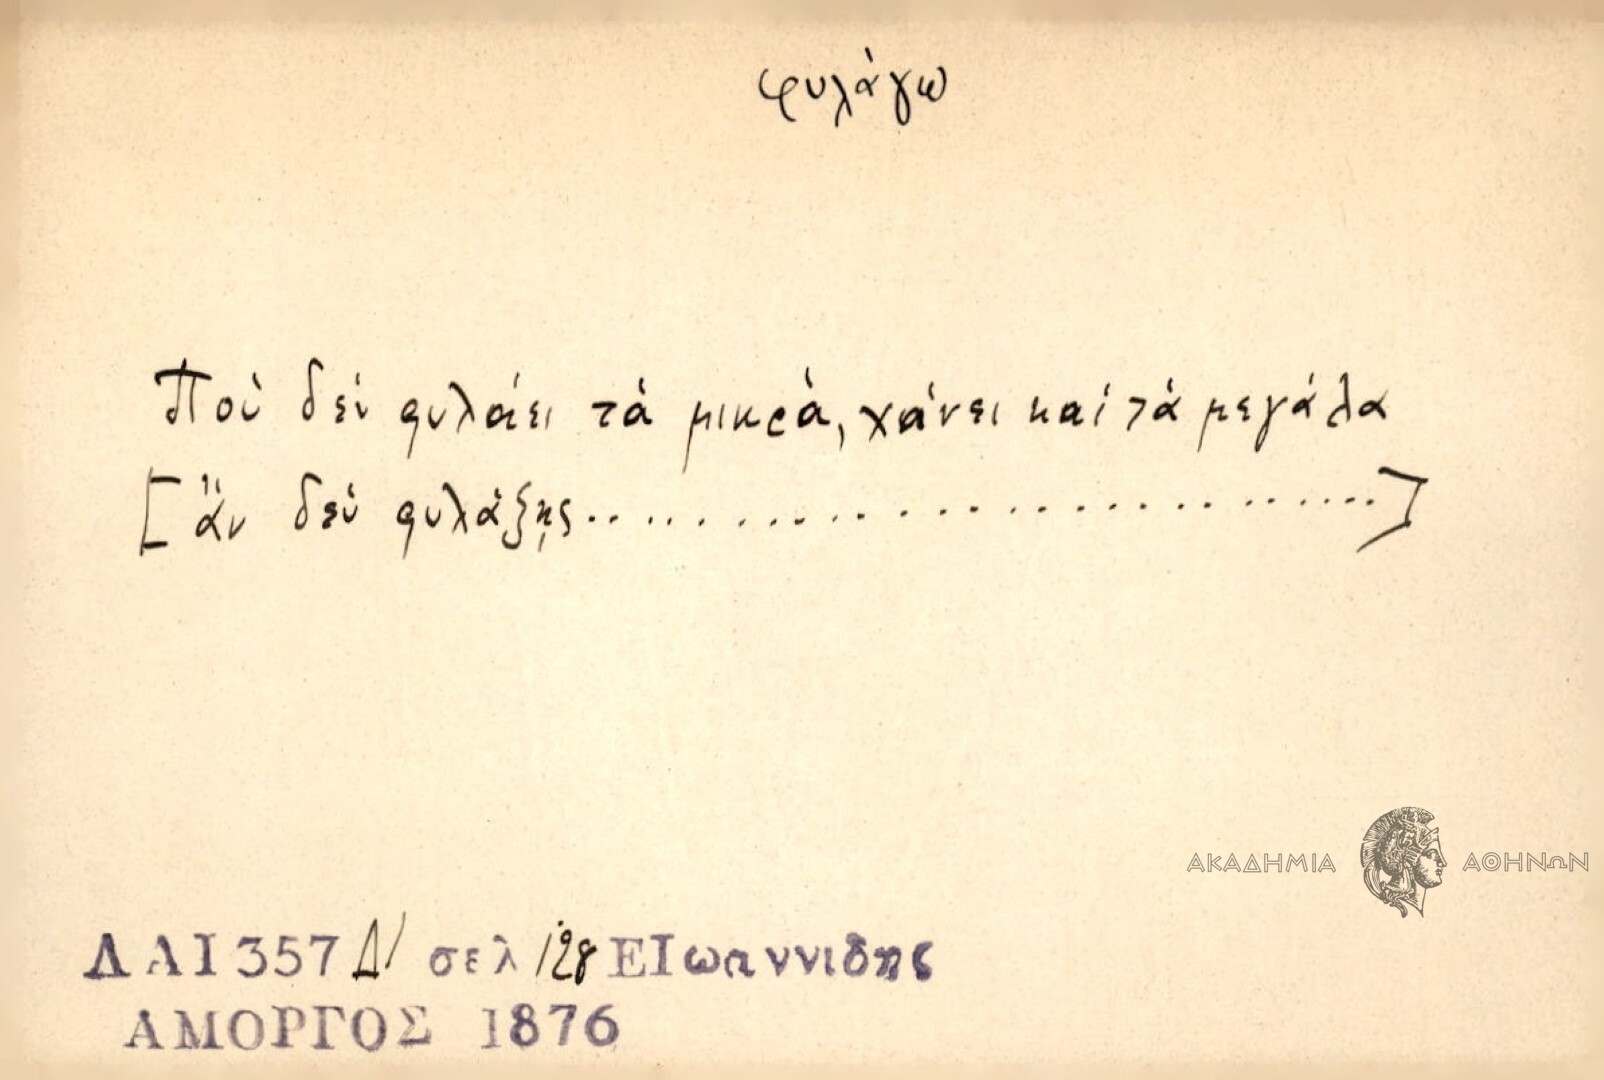 φυλάγω
Ποὺ δὲν φυλάει τὰ μικρὰ, χάνει καὶ τὰ μεγάλα
[ἂν δὲν φυλάξῃς...........................]
ΑΚΑΔΗΜΙΑ ΑΘΗΝΩΝ
ΔΑΙ357 Δ' σελ 128 ΕΙωαννιδης
ΑΜΟΡΓΟΣ 1876